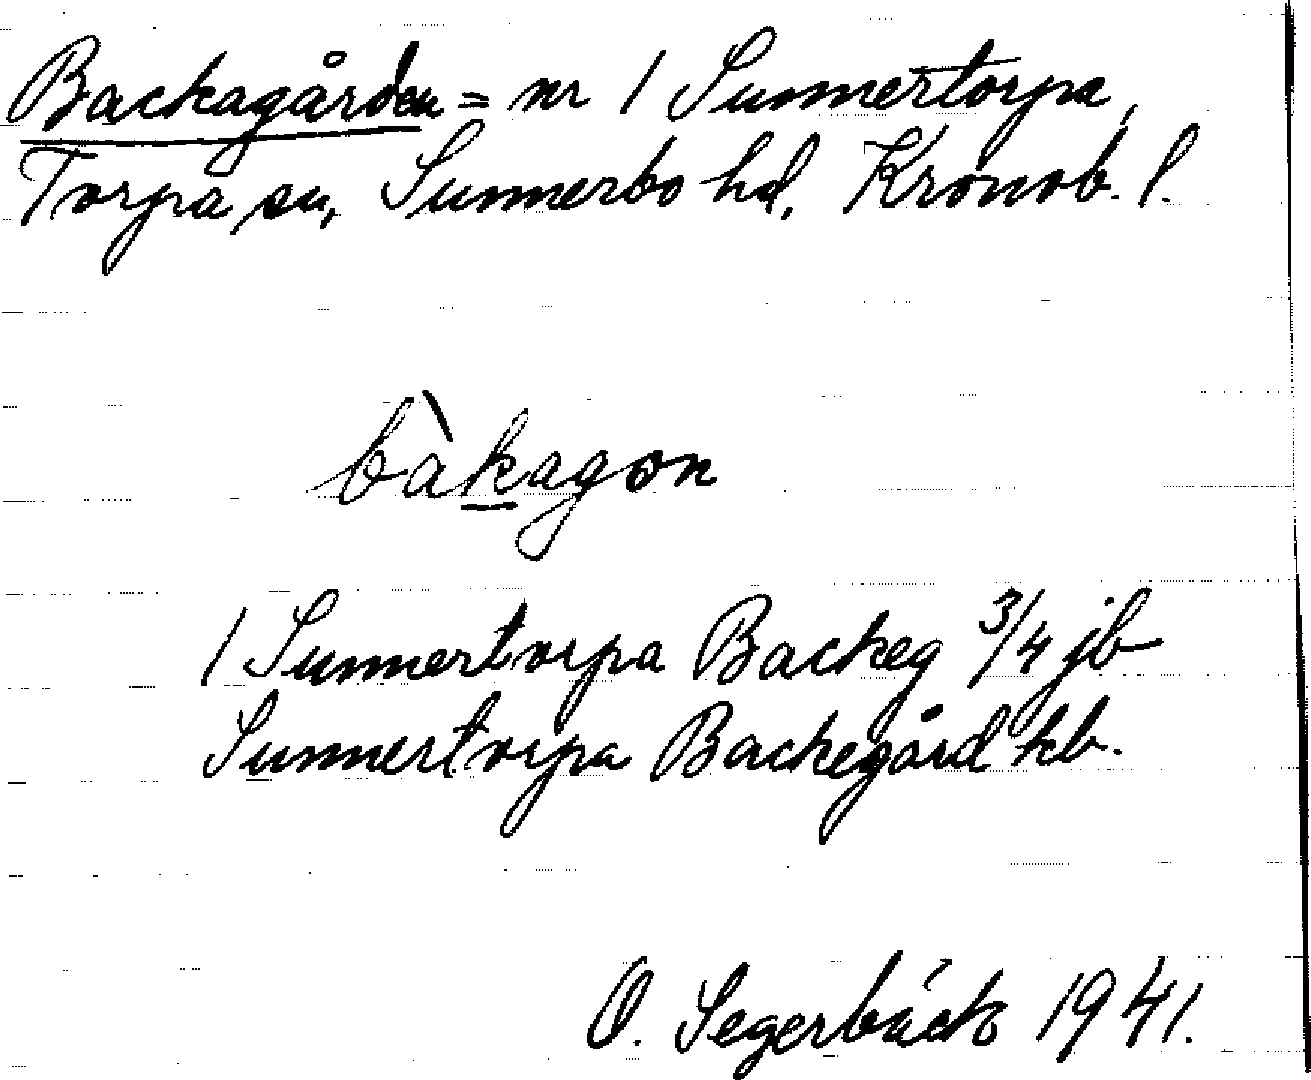 Backagården = nr 1 Sunnertorpa,
Torpa sn, Sunnerbo hd, Kronob. l.
bàkagɷn
1 Sunnertorpa Backeg 3/4 jb
Sunnertorpa Backegård kb.
O. Segerbäck 1941.